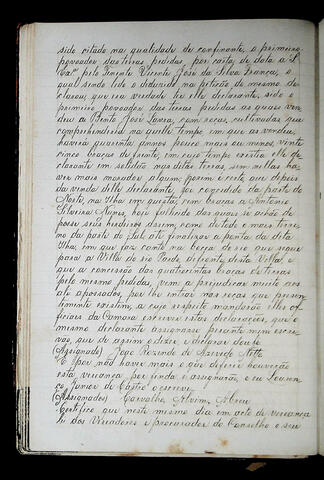 sido citado na qualidade de confinante, o primeiro
povoador das terras pedidas, por carta de data a S.
Ex.ª pelo Tenente Vicente José da Silva França, o
qual sendo lido e deduzido na petição do mesmo de-
clarou, que era verdade ser elle declarante, sido o
primeiro povoador das terras pedidas as quaes ven-
deu a Bento José Lavra, com rocas, cultivadas que
comprehendiria naquelle tempo em que as vendeu,
havia quarenta annos pouco mais ou menos, vinte
cinco braças de frente, em cujo tempo existia elle de-
clarante em solidão nas ditas terras, sem nellas ha-
ver mais morador algum; porem é certo que depois
da venda delle declarante, foi concedido da parte do
Norte, na Ilha em questão, cem braças a Antonio
Silverino Nunes, hoje fallecido das quaes se achão de
posse seus herdeiros assim, como de todo o mais terre-
no da parte do Sul até finalisar a ponta da dita
Ilha, em que faz canto na bocca do rio que segue
para a Villa do rio Pardo, defronte desta Villa, e
que a concessão das quatrocentas braças de terras
pelo mesmo pedidas, vem a prejudicar muito aos
ali apossados, por lhe intrar nas rocas que presen-
temente existem, a cujo respeito mandarão elles of-
ficiaes da Camara escrever estas declarações, que o
mesmo declarante assignasse perante mim escri-
vão, que de assim o dizer, e declarar dou fé
(Assignado) João Rozendo de Azevedo Netto
E por não haver mais o que deferir houverão
esta vereança por finda e assignarão, e eu Louren-
ço Junior de Castro o escrevi
(Assignados) Carvalho, Alvim, Abreu
Certifico que neste mesmo dia em acto de vereança
os dos Vereadores e procurador do Conselho e seu